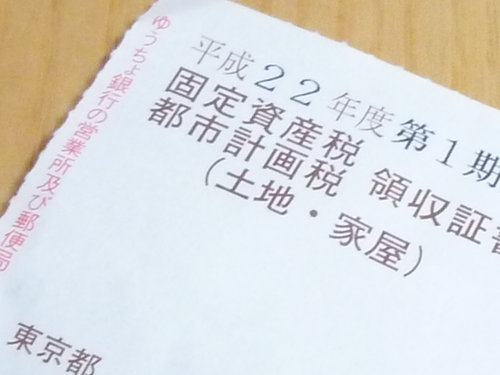 平成22年度第1期
固定資産税
都市計画税 領収証書
(土地・家屋)
ゆうちょ銀行の営業所及び郵便局
東京都